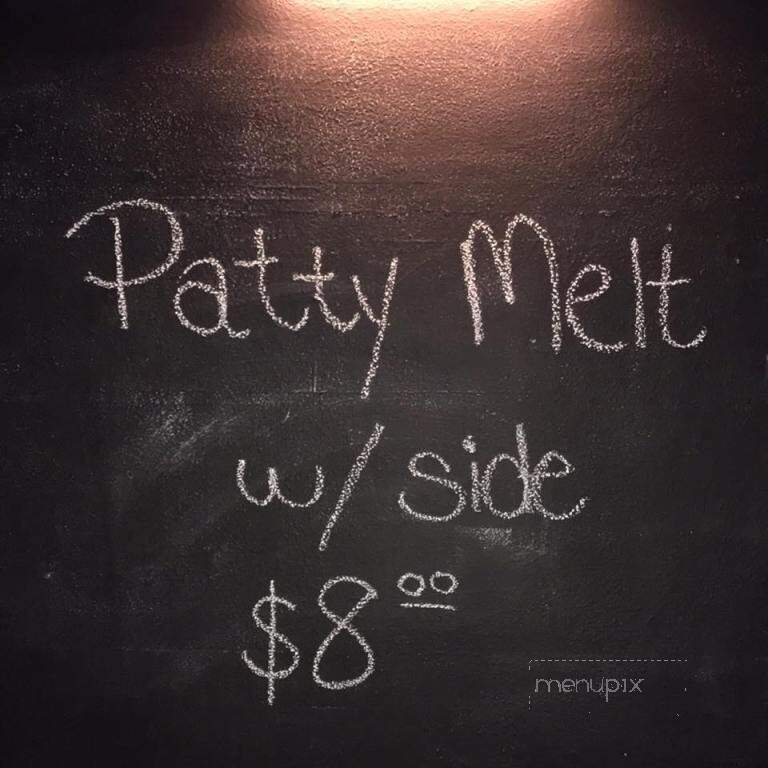 Patty Melt
w/ side
$8 00
menupix